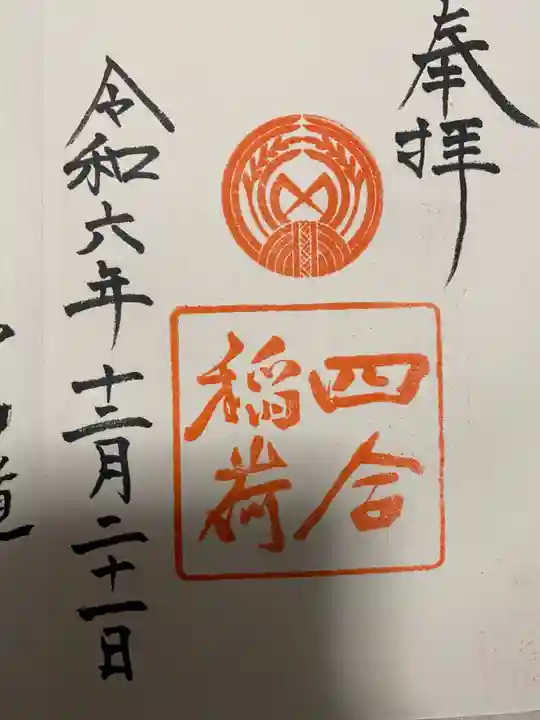 奉拝
四合
稲荷
令和六年十二月二十一日